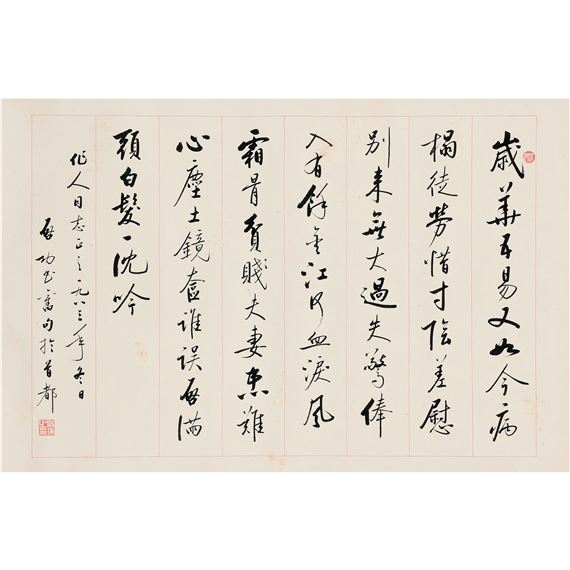 歲華五易又如今病
榻徒勞惜寸陰差慰
別來無大過失驚俸
入有餘金江河血淚風
霜骨貧賤夫妻患難
心塵土鏡奩誰誤啟滿
頭白髮一沈吟
作人同志正之一九八三年冬日
啟功書舊句於首都